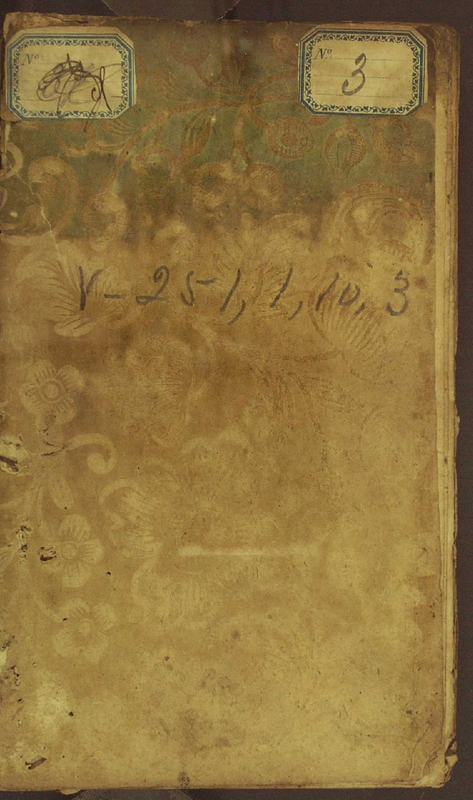 No
No 3
V-251,1,10,3